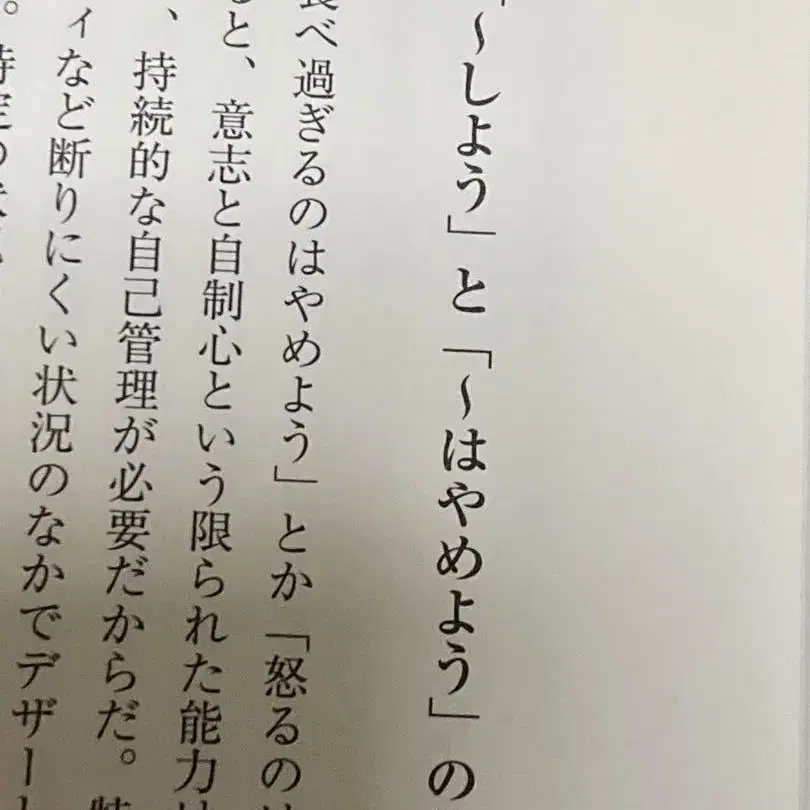 「～しよう」と「～はやめよう」の
食べ過ぎるのはやめよう」とか「怒るのは
ると、意志と自制心という限られた能力は
、持続的な自己管理が必要だからだ。特
ィなど断りにくい状況のなかでデザート
。特定の